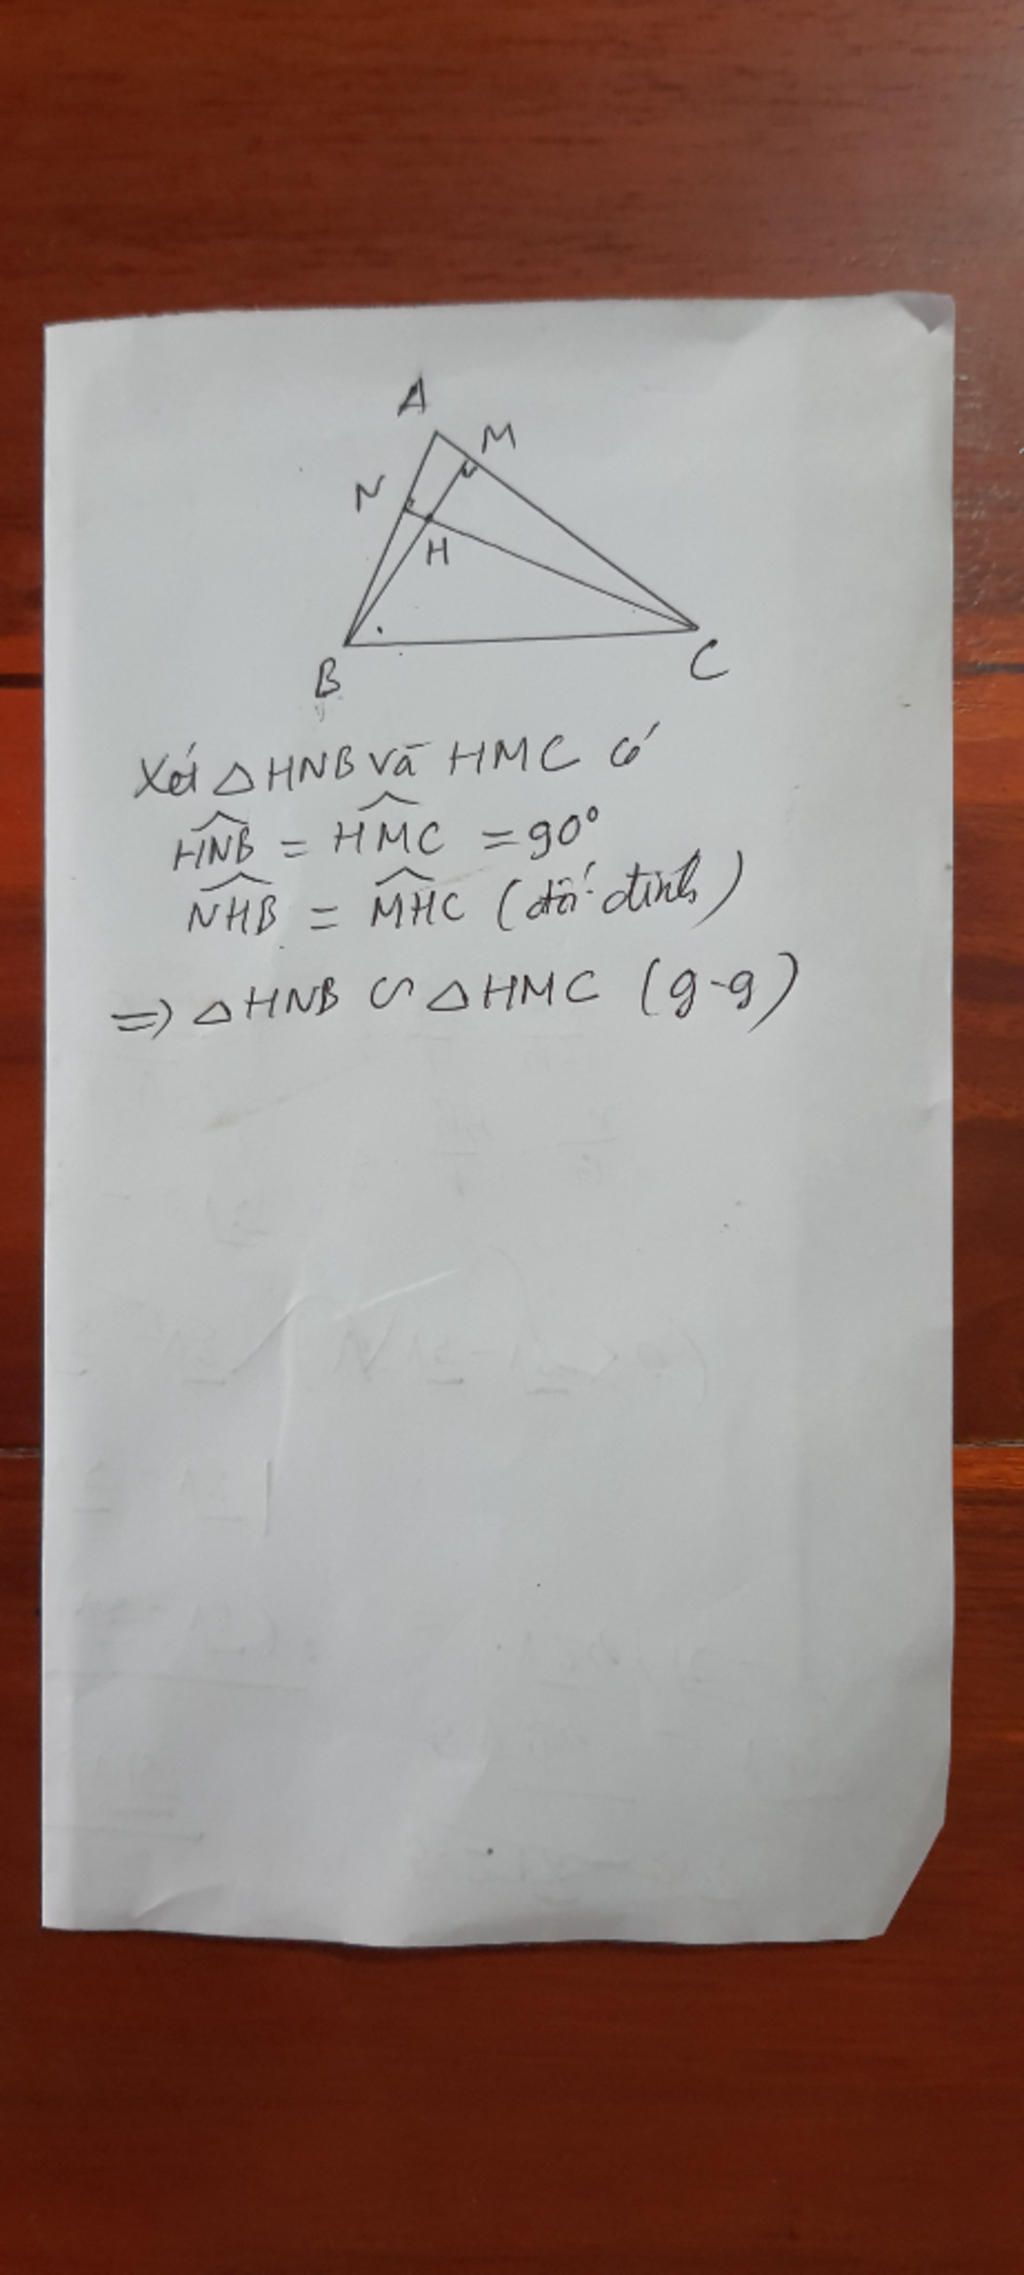 A
M
N
H
B
C
Xét △HNB và HMC có
HNB = HMC = 90°
NHB = MHC (đối đỉnh)
=> △HNB ∽ △HMC (g-g)